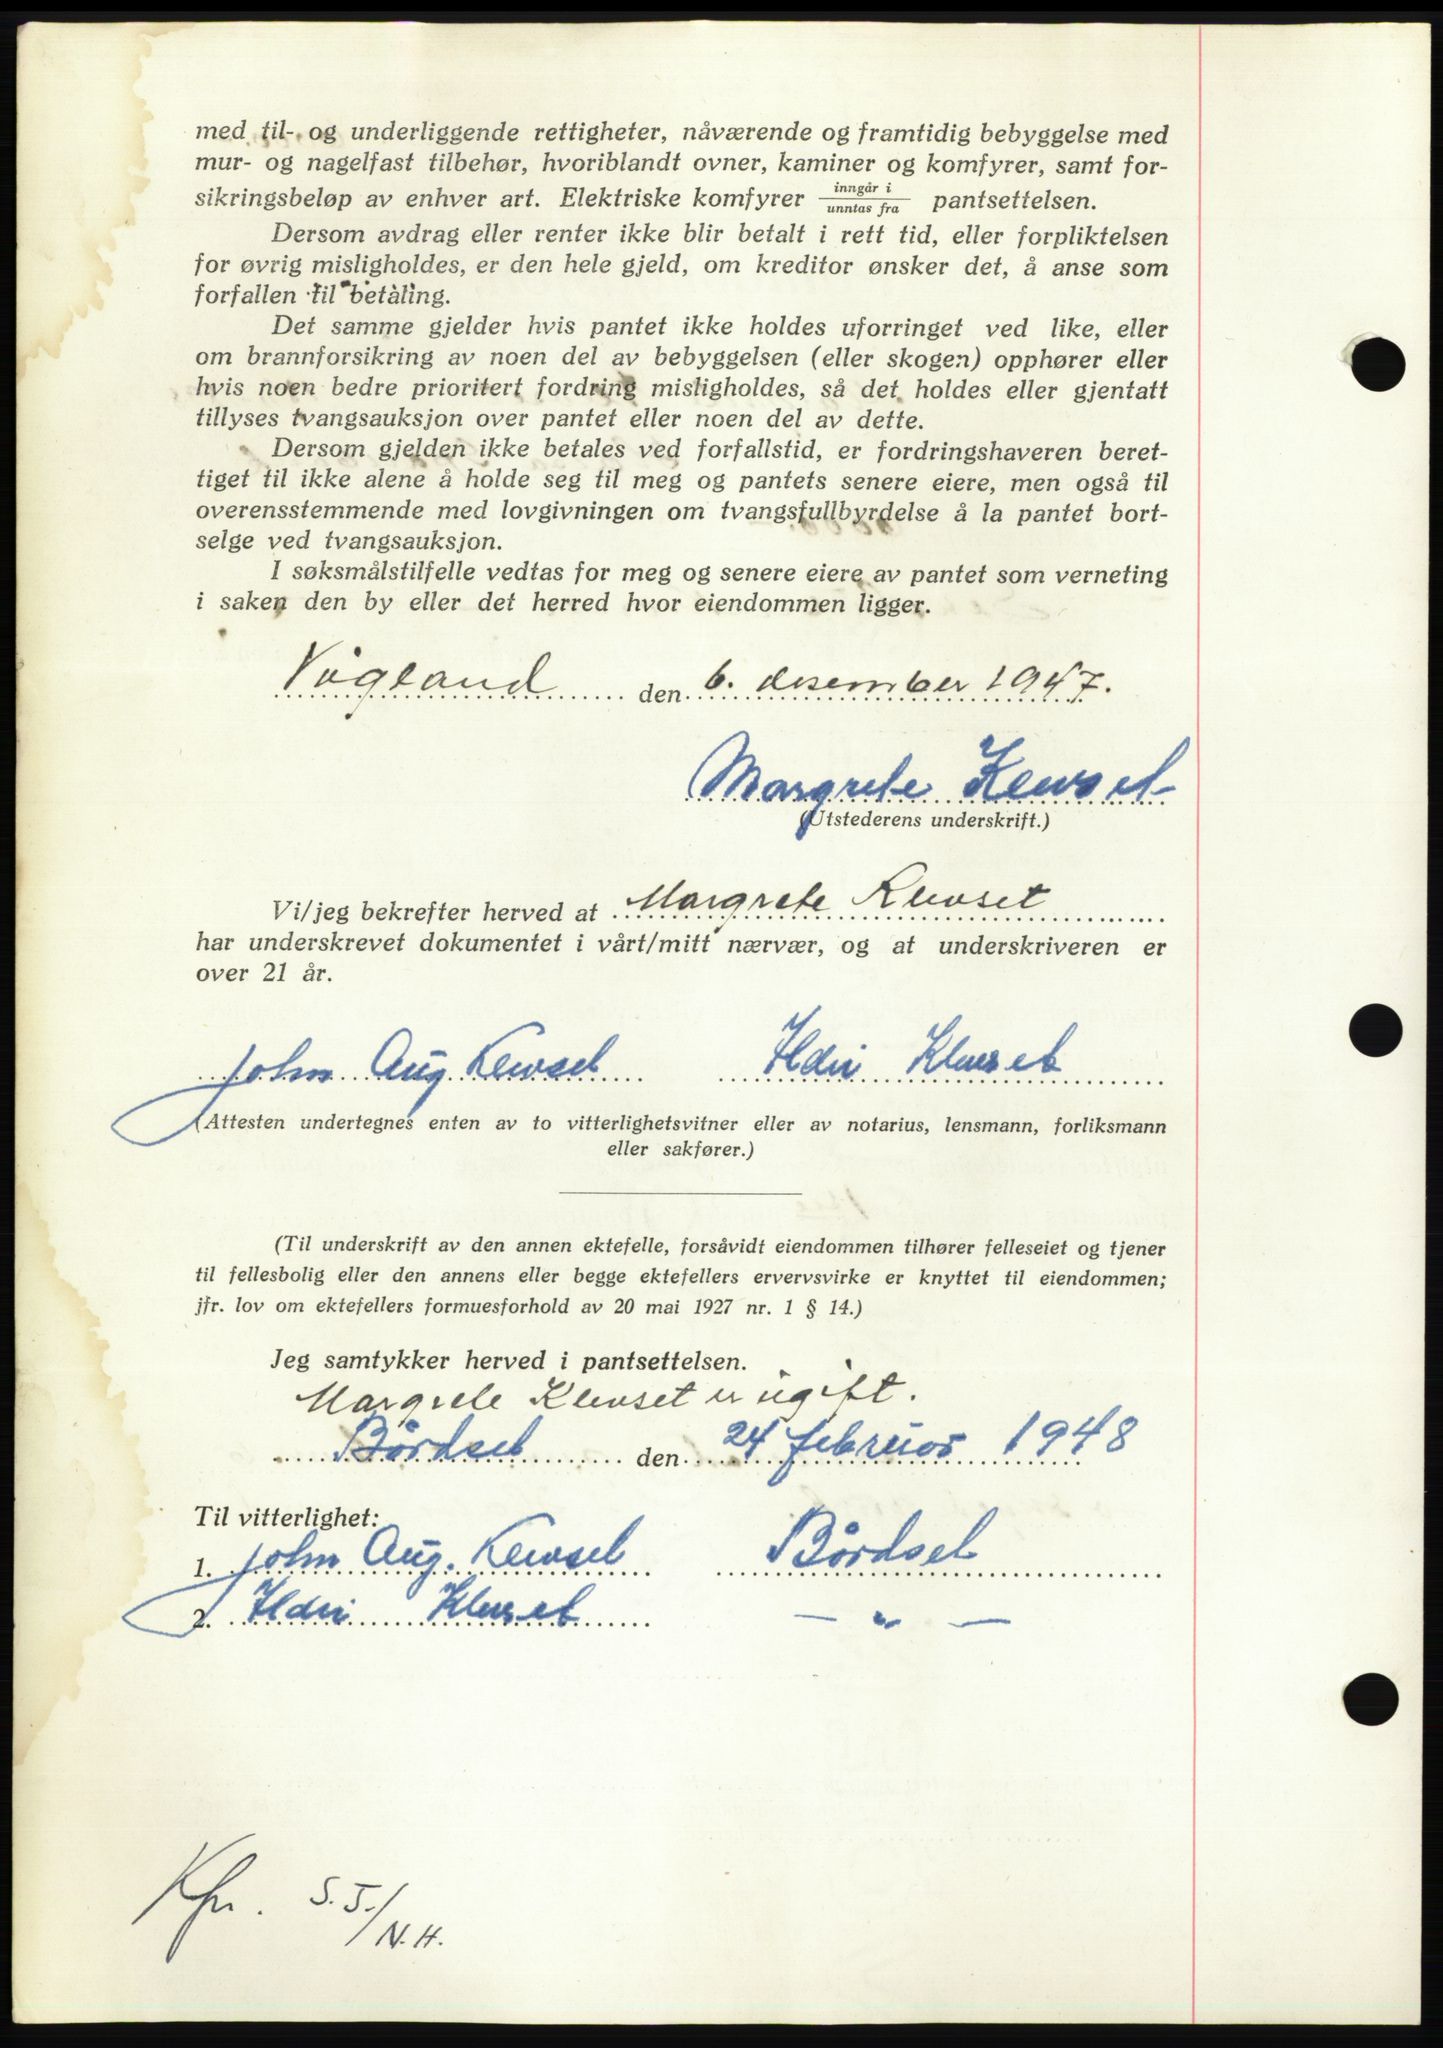 med til- og underliggende rettigheter, nåværende og framtidig bebyggelse med
mur- og nagelfast tilbehør, hvoriblandt ovner, kaminer og komfyrer, samt for-
sikringsbeløp av enhver art. Elektriske komfyrer inngår i / unntas fra pantsettelsen.
Dersom avdrag eller renter ikke blir betalt i rett tid, eller forpliktelsen
for øvrig misligholdes, er den hele gjeld, om kreditor ønsker det, å anse som
forfallen til betaling.
Det samme gjelder hvis pantet ikke holdes uforringet ved like, eller
om brannforsikring av noen del av bebyggelsen (eller skogen) opphører eller
hvis noen bedre prioritert fordring misligholdes, så det holdes eller gjentatt
tillyses tvangsauksjon over pantet eller noen del av dette.
Dersom gjelden ikke betales ved forfallstid, er fordringshaveren beret-
tiget til ikke alene å holde seg til meg og pantets senere eiere, men også til
overensstemmende med lovgivningen om tvangsfullbyrdelse å la pantet bort-
selge ved tvangsauksjon.
I søksmålstilfelle vedtas for meg og senere eiere av pantet som verneting
i saken den by eller det herred hvor eiendommen ligger.
Vågland den 6. desember 1947.
Margrete Klevset
(Utstederens underskrift.)
Vi/jeg bekrefter herved at Margrete Klevset
har underskrevet dokumentet i vårt/mitt nærvær, og at underskriveren er
over 21 år.
John Aug. Klevset Ildri Klevset
(Attesten undertegnes enten av to vitterlighetsvitner eller av notarius, lensmann, forliksmann
eller sakfører.)
(Til underskrift av den annen ektefelle, forsåvidt eiendommen tilhører felleseiet og tjener
til fellesbolig eller den annens eller begge ektefellers ervervsvirke er knyttet til eiendommen;
jfr. lov om ektefellers formuesforhold av 20 mai 1927 nr. 1 § 14.)
Jeg samtykker herved i pantsettelsen.
Margrete Klevset er ugift.
Bårdset den 24 februar 1948
Til vitterlighet:
1. John Aug. Klevset Bårdset
2. Ildri Klevset — " —
Kfr. S.J./N.H.